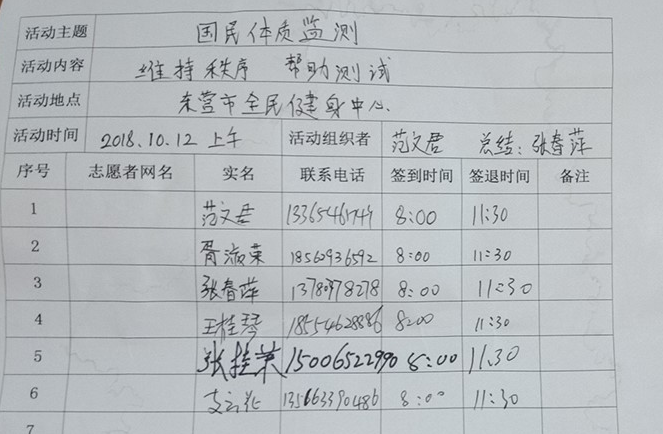 活动主题 国民体质监测
活动内容 维持秩序 帮助测试
活动地点 东营市全民健身中心
活动时间 2018.10.12 上午 活动组织者 范文君 总结:张春萍
序号 志愿者网名 实名 联系电话 签到时间 签退时间 备注
1 范文君 8:00 11:30
2 胥淑荣 18560936592 8:00 11:30
3 张春萍 13780978278 8:00 11:30
4 王桂琴 18554628886 8:00 11:30
5 张桂荣 15006522990 8:00 11.30
6 135663390486 8:00 11:30
7